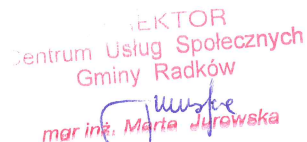 EKTOR
Centrum Usług Społecznych
Gminy Radków
mgr inż. Marta Jurowska